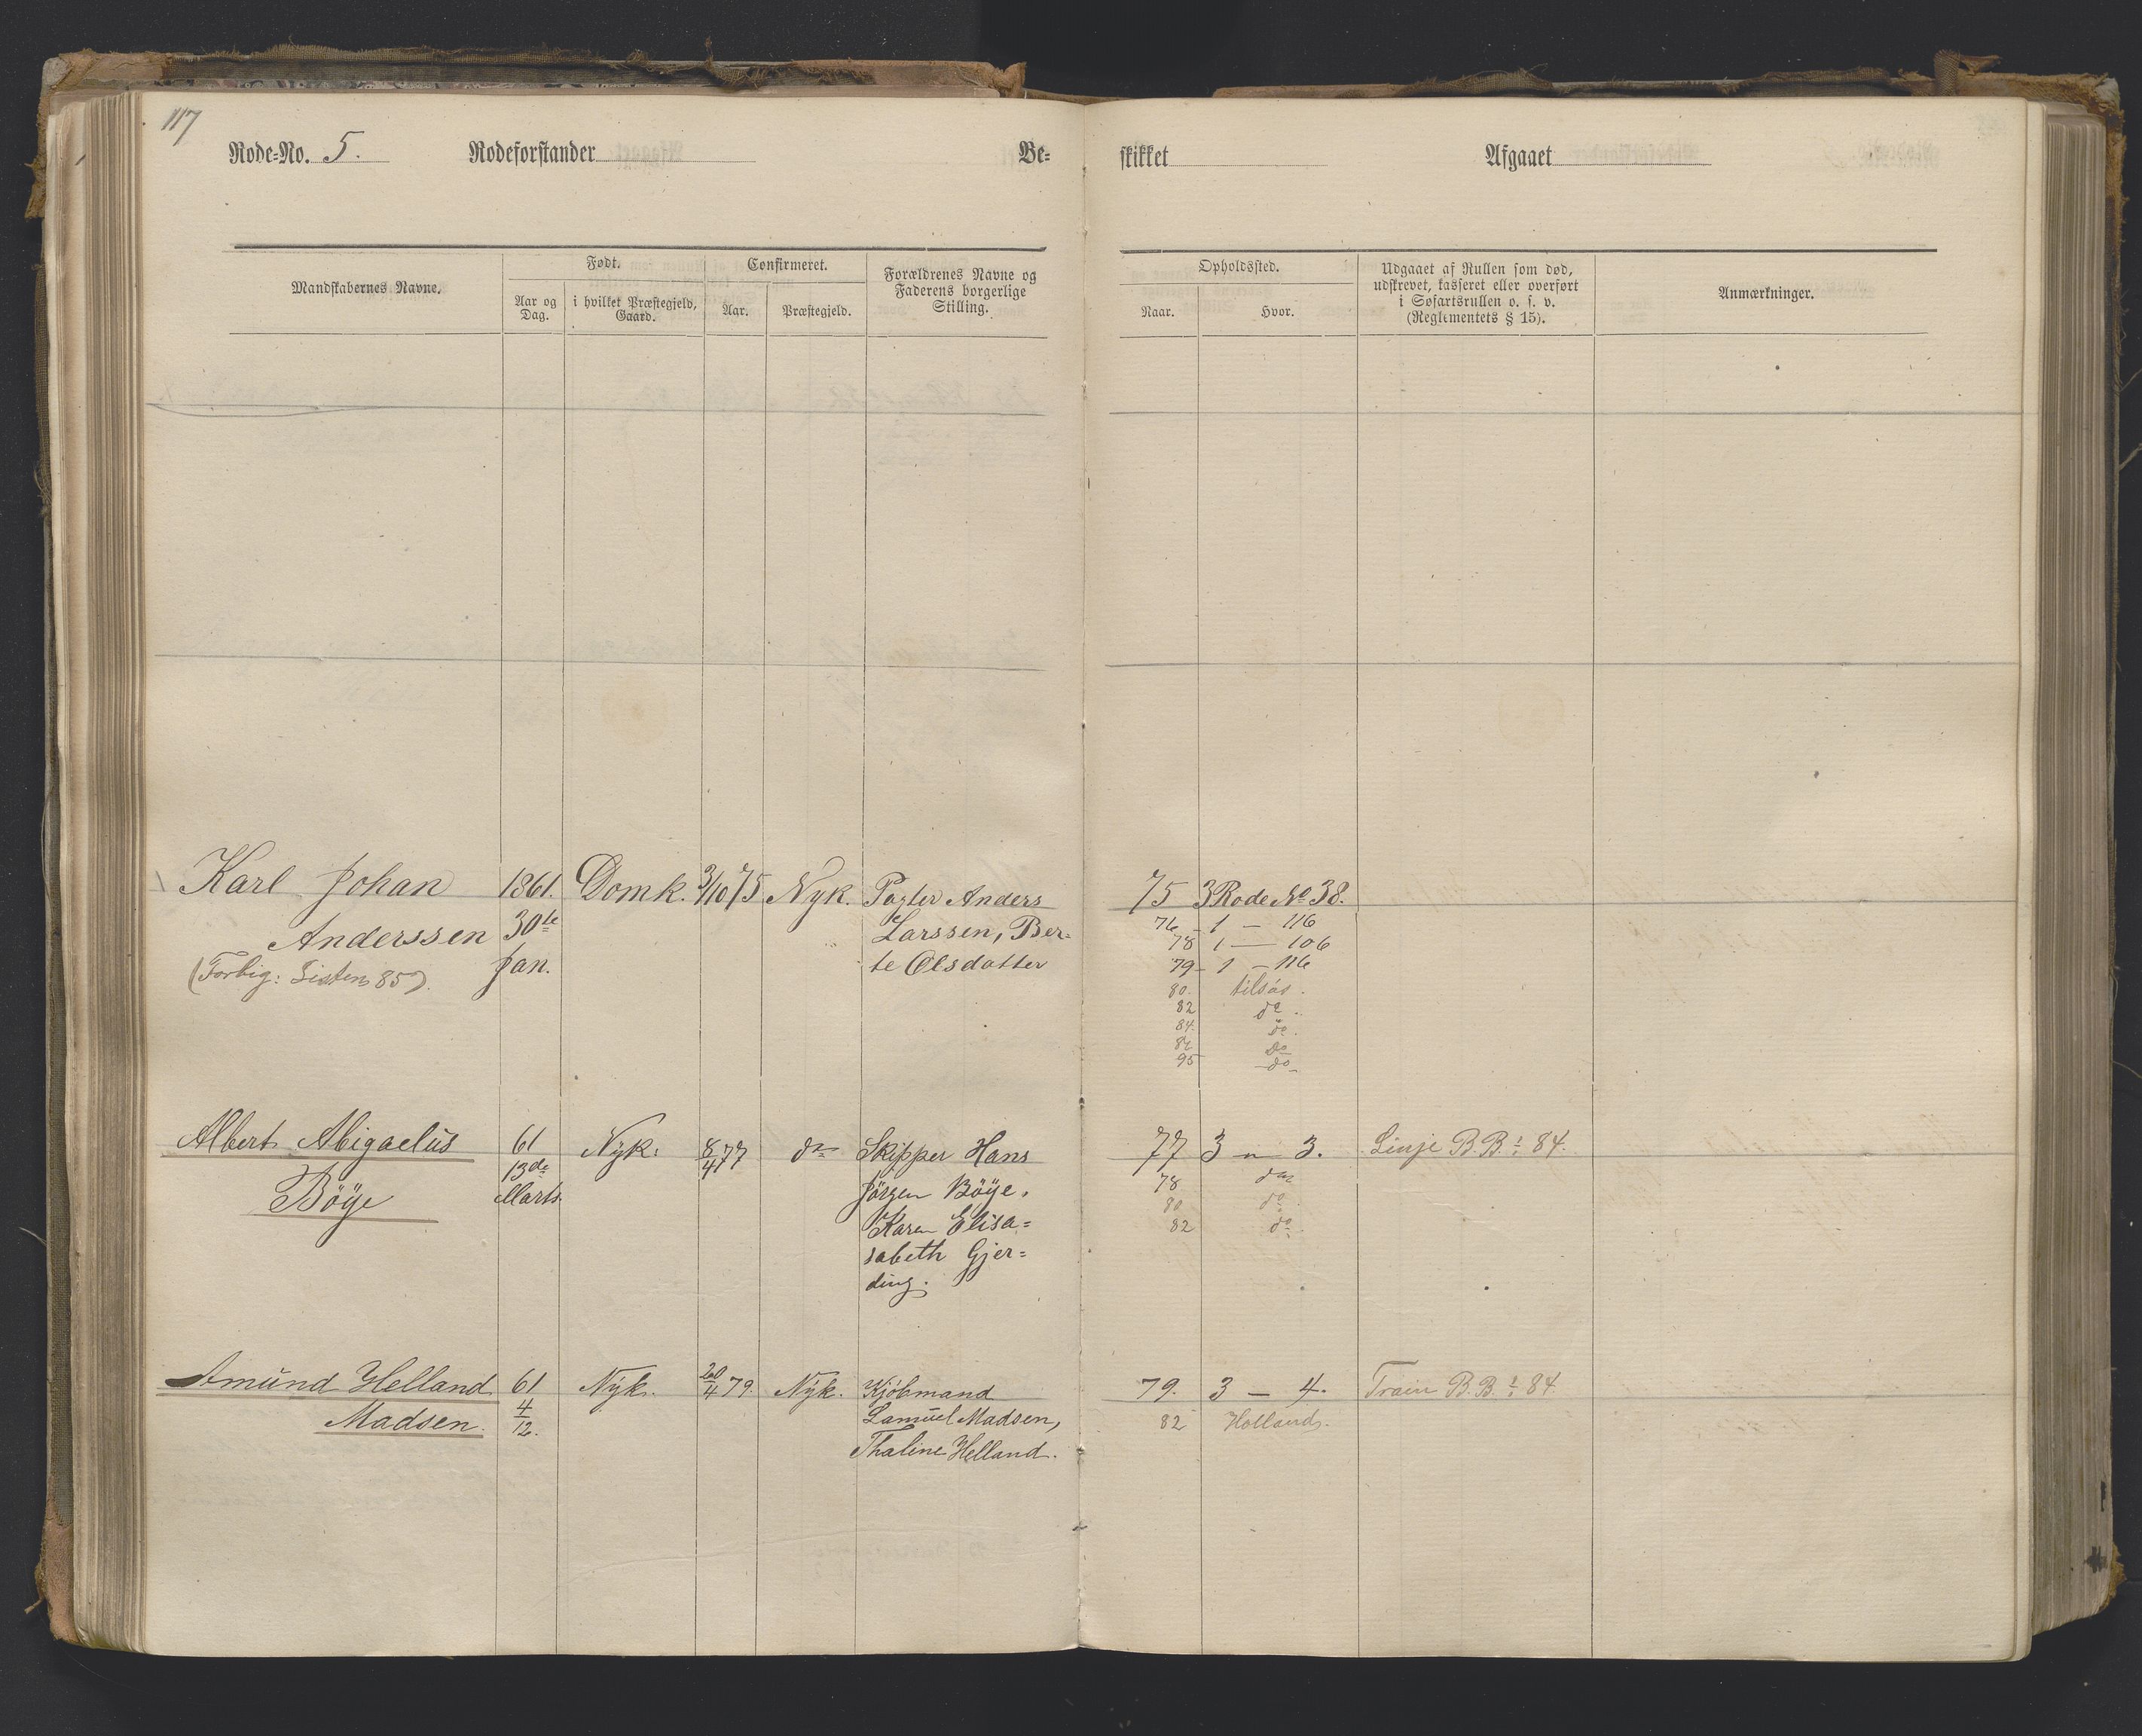 117
Rode-No. 5. Rodeforstander Be-
skikket Afgaaet
Mandskabernes Navne.
Født.
Aar og Dag.
i hvilket Præstegjeld, Gaard.
Confirmeret.
Aar.
Præstegjeld.
Forældrenes Navne og
Faderens borgerlige
Stilling.
Opholdssted.
Naar.
Hvor.
Udgaaet af Rullen som død,
udskrevet, kasseret eller overført
i Søfartsrullen o. s. v.
(Reglementets § 15).
Anmærkninger.
Karl Johan 1861. Domk. 3/10 75 Nyk. Anders
Anderssen 30te Larssen, Ber=
(Forbig: Listen 85). Jan. te Olsdatter
75 3 Rode No 38.
76 - 1 - 116
78 1 — 106
79 - 1 - 116
80. tilsøs.
82 do.
84. do.
do
95 do
Albert Abigaelus 61 Nyk. 8/4 77 do Skipper Hans
Böye 13de Marts. Jörgen Böye,
Karen Elisa=
sabeth Gjer=
ding.
77 3 " 3. Linje B. B. : 84.
78 do
80 do.
82 do.
Amund Helland 61 Nyk. 20/4 79. Nyk. Kjöbmand
Madsen. 4/12. Samuel Madsen,
Thaline Helland.
79. 3 — 4. Train B. B. : 84
82 Holland.